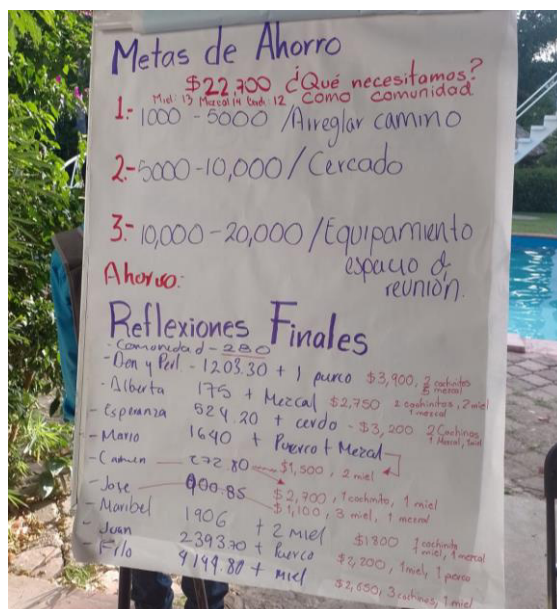 Metas de Ahorro
$22,700 ¿Qué necesitamos?
Miel: 13 Mezcal 14 Coch 12 como comunidad
1.- 1000 - 5000 / Arreglar camino
2.- 5000 - 10,000 / Cercado
3.- 10,000 - 20,000 / Equipamiento
espacio d
reunión.
Ahorro:
Reflexiones Finales
- Comunidad - 280
- Don y Perl - 1203.30 + 1 puerco $3,900, 2 cochinitos
mezcal
- Alberta 175 + Mezcal $2,750 2 cochinitos, 2 miel
1 mezcal
- Esperanza 524.20 + cerdo - $3,200 2 Cochinos
1 Mezcal,
- Mario 1640 + Puerco + Mezcal
- Carmen 272.80 $1,500, 2 miel
- Jose 900.85 $2,700, 1 cochinito, 1 miel
$1,100, 3 miel, 1 mezcal
- Maribel 1906 + 2 miel $1800 1 cochinito
1 miel, 1 mezcal
- Juan 2393.70 + Puerco $2,200, 1 miel, 1 porco
- Filo 4199.80 + miel $2,650, 3 cochinos, 1 miel